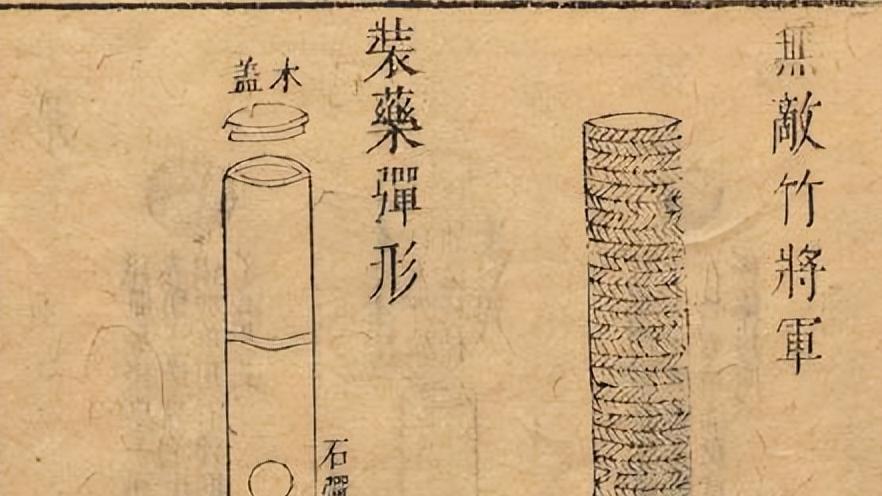 無敵竹將軍
裝藥彈形
木蓋
石彈